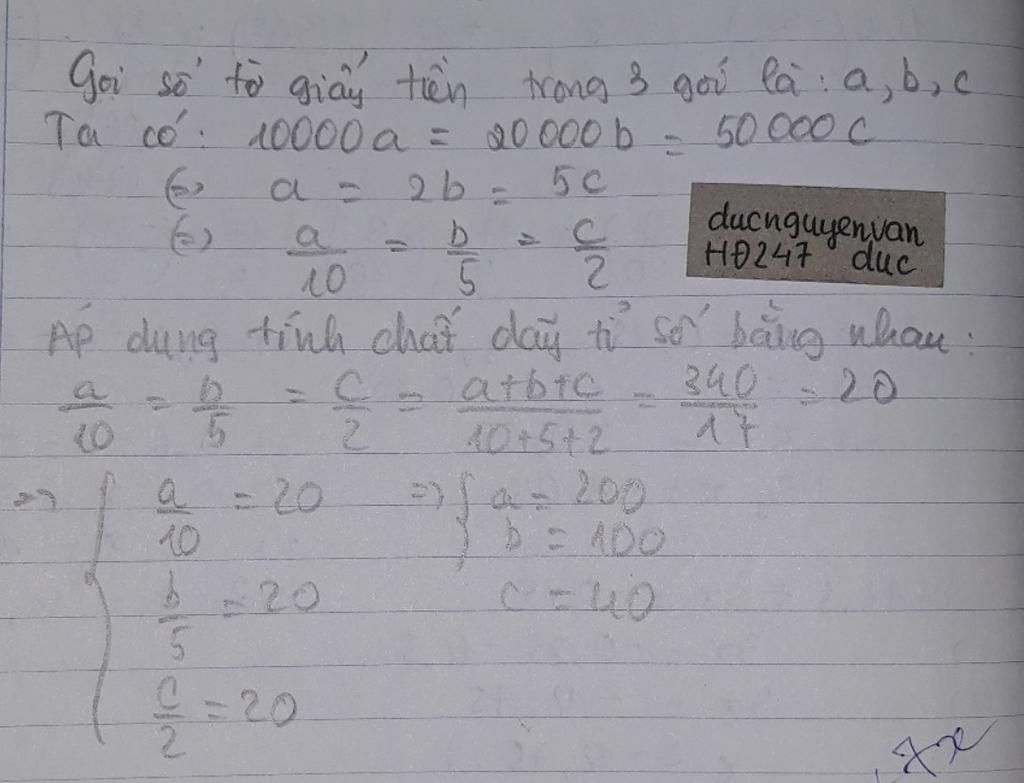 Gọi số tờ giấy tiền trong 3 gói là: a, b, c
Ta có: 10000a = 20000b = 50000c
(=) a = 2b = 5c
(=) a/10 = b/5 = c/2
ducnguyenvan
HĐ247 duc
Áp dụng tính chất dãy tỉ số bằng nhau:
a/10 = b/5 = c/2 = a+b+c/10+5+2 = 340/17 = 20
=> { a/10 = 20 => { a = 200
b = 100
b/5 = 20 c = 40
c/2 = 20